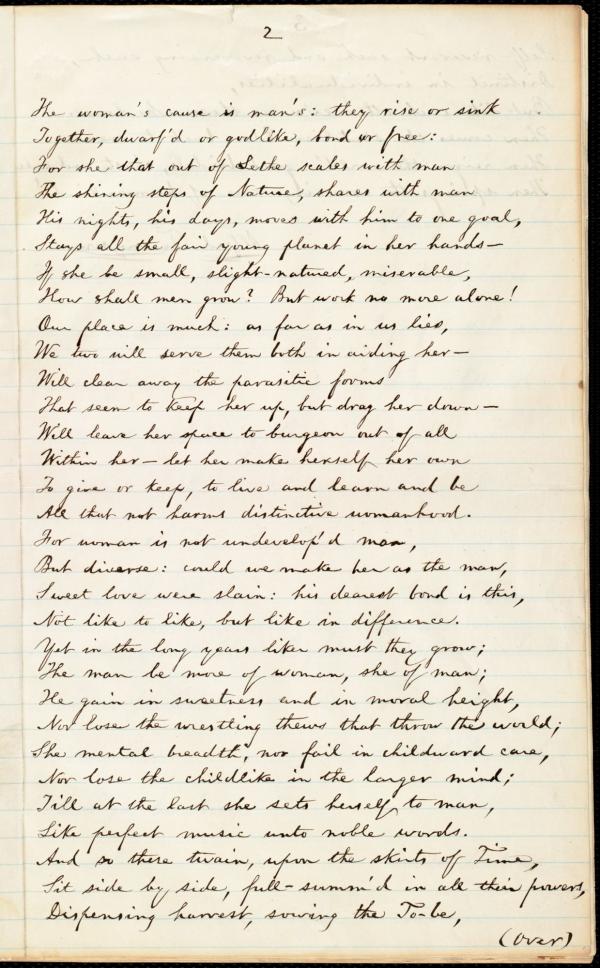 2
The woman's cause is man's: they rise or sink
Together, dwarf'd or godlike, bond or free:
For she that out of Lethe scales with man
The shining steps of Nature, shares with man
His nights, his days, moves with him to one goal,
Stays all the fair young planet in her hands—
If she be small, slight-natured, miserable,
How shall men grow? But work no more alone!
Our place is much: as far as in us lies,
We two will serve them both in aiding her—
Will clear away the parasitic forms
That seem to keep her up, but drag her down—
Will leave her space to burgeon out of all
Within her—let her make herself her own
To give or keep, to live and learn and be
All that not harms distinctive womanhood.
For woman is not undevelop'd man,
But diverse: could we make her as the man,
Sweet love were slain: his dearest bond is this,
Not like to like, but like in difference.
Yet in the long years liker must they grow;
The man be more of woman, she of man;
He gain in sweetness and in moral height,
Nor lose the wrestling thews that throw the world;
She mental breadth, nor fail in childward care,
Nor lose the childlike in the larger mind;
Till at the last she sets herself to man,
Like perfect music unto noble words.
And so these twain, upon the skirts of Time,
Sit side by side, full-summ'd in all their powers,
Dispensing harvest, sowing the To-be,
(Over)